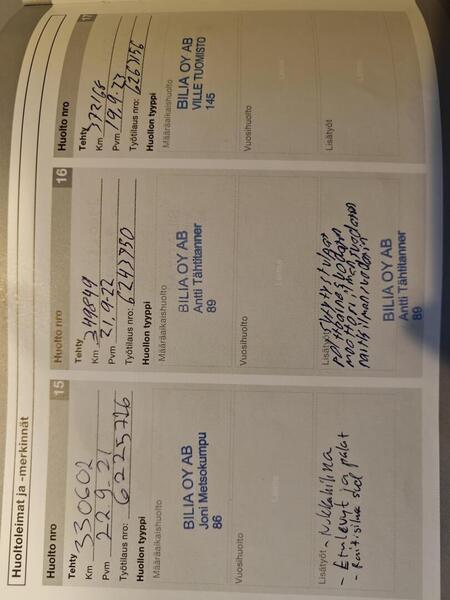 Huoltoleimat ja -merkinnät
Huolto nro
15
Tehty
Km 330602
Pvm 22.9-21
Työtilaus nro: 6225726
Huollon tyyppi
Määräaikaishuolto
BILIA OY AB
Joni Metsokumpu
86
Vuosihuolto
Leima
Lisätyöt - Nokkahihna
- Etulevyt ja palat
- Raitisilma suod
Huolto nro
16
Tehty
Km 349849
Pvm 21.9-22
Työtilaus nro: 6243750
Huollon tyyppi
Määräaikaishuolto
BILIA OY AB
Antti Tähtitanner
89
Vuosihuolto
Lisätyöt
BILIA OY AB
Antti Tähtitanner
89
Huolto nro
17
Tehty
Km 372168
Pvm 19.9.-23
Työtilaus nro: 6263156
Huollon tyyppi
Määräaikaishuolto
BILIA OY AB
VILLE TUOMISTO
145
Vuosihuolto
Leima
Lisätyöt
Leima